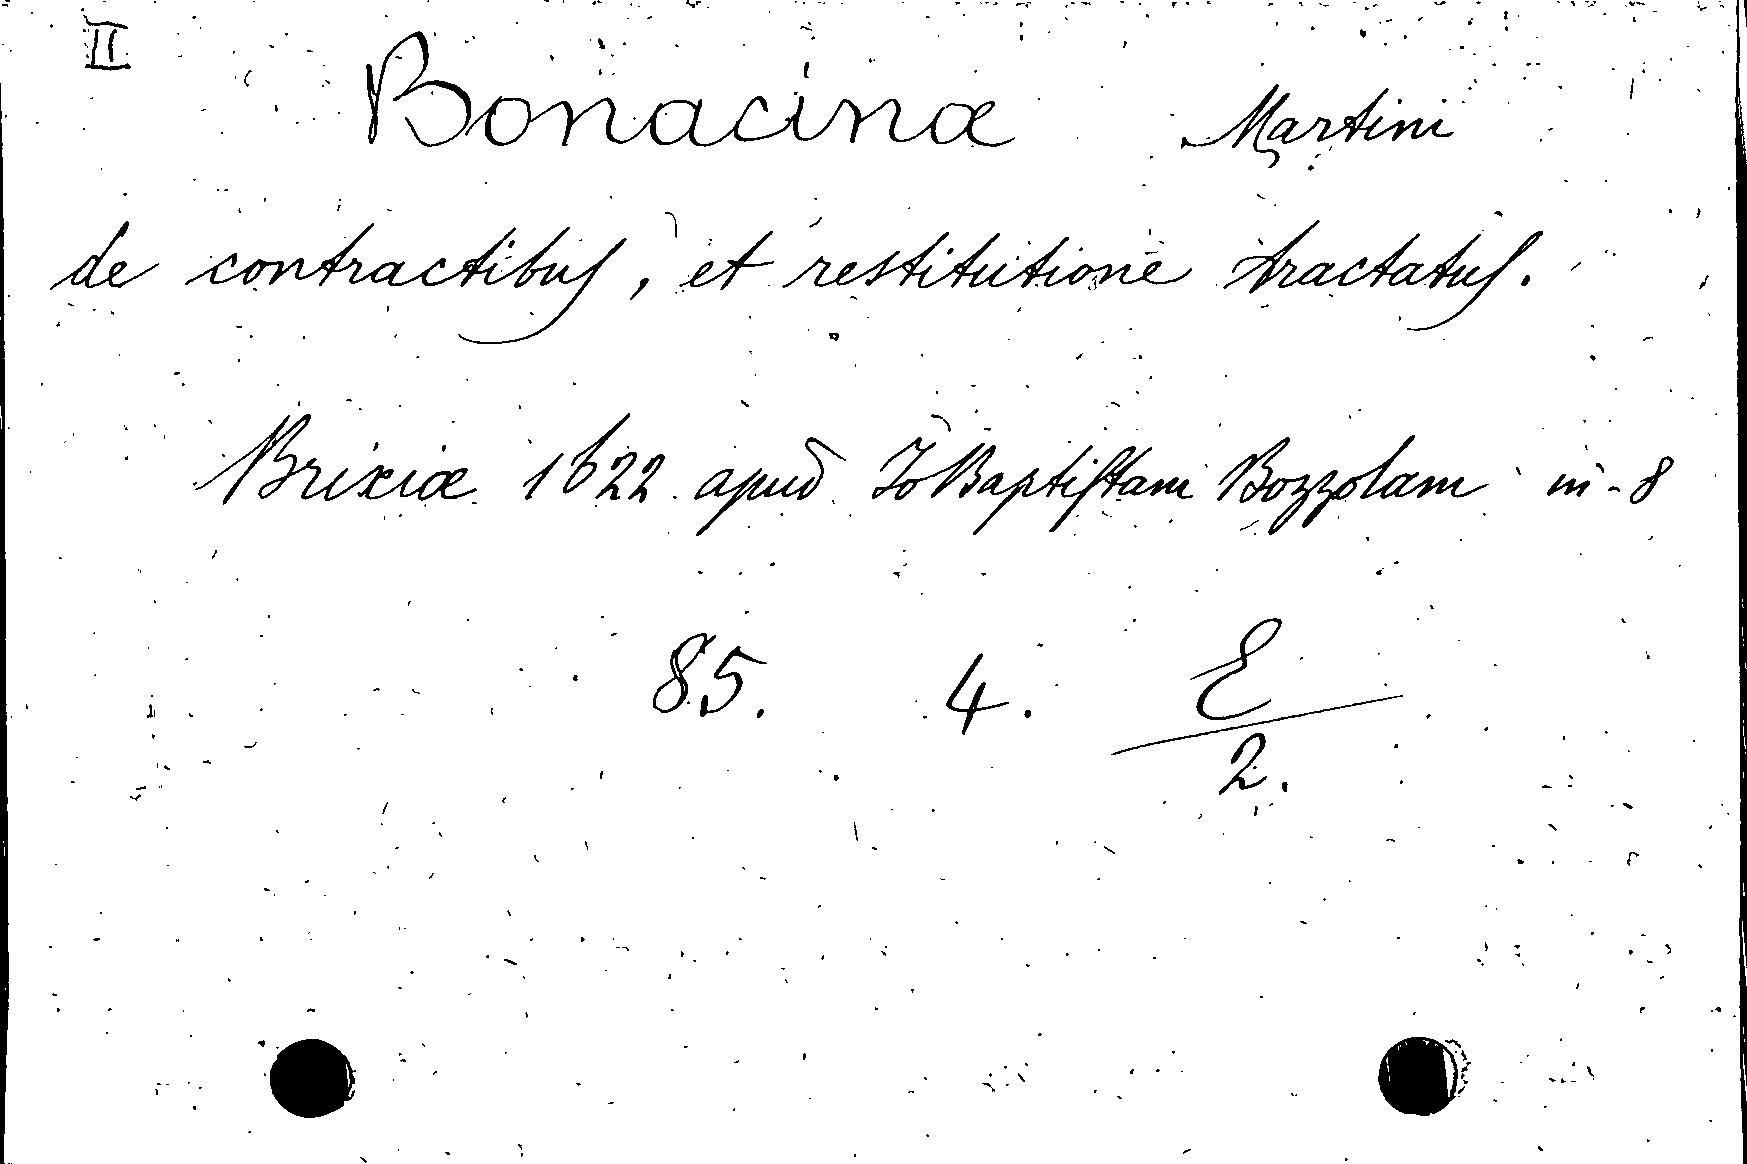 II
Bonacinæ Martini
de contractibus, et restitutione tractatus.
Brixiæ 1622 apud Jo Baptistam Bozzolam in-8
85. 4. E
2.